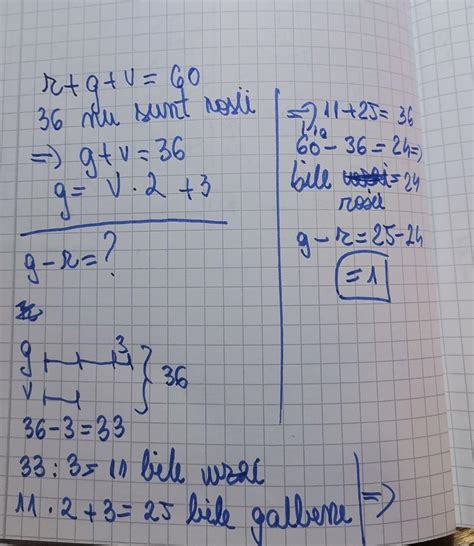 r+g+v=60
36 nu sunt rosii
=> g+v=36
g= v·2+3
g-r=?
g
3
v
36
36-3=33
33:3=11 bile verzi
11·2+3=25 bile galbene =>
=> 11+25=36
60-36=24=>
bile =24
rosii
g-r=25-24
=1